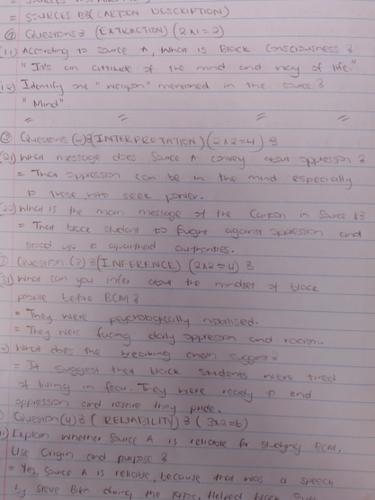 = SOURCES B: (CARTOON DESCRIPTION)
Question: (EXTRACTION) (2x1=2)
(1.1) According to Source A, What is Black Consciousness?
"It's an attitude of the mind and way of life."
(1.2) Identify one "weapon" mentioned in the source?
"Mind"
= = = =
Question (2): (INTERPRETATION) (2x2=4):
(2.1) What message does Source A convey about oppression?
= That oppression can be in the mind especially
to those who seek power.
(2.2) What is the main message of the Cartoon in Source B?
= That black student to fought against oppression and
stood up to apartheid authorities.
Question (3): (INFERENCE) (2x2=4):
What can you infer about the mindset of black
people before BCM?
= They were psychologically
= They were facing daily oppression and racism.
What does the breaking chain suggest?
= It suggest that black students were tired
of living in fear. They were ready to end
oppression and restore they pride.
Question (4): (RELIABILITY): (3x2=6)
Explain whether Source A is reliable for studying BCM,
Use Origin and purpose?
= Yes, Source A is reliable, because that was a speech
by Steve Biko during the Helped black